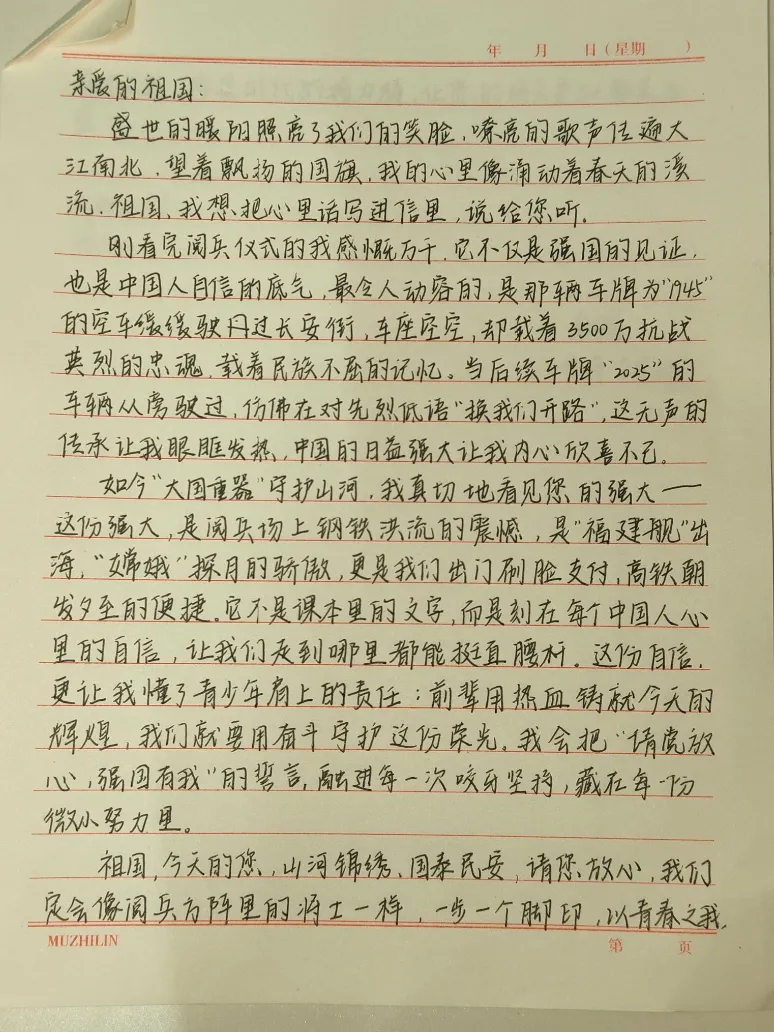 年 月 日(星期 )
亲爱的祖国:
盛世的暖阳照亮了我们的笑脸,嘹亮的歌声传遍大
江南北.望着飘扬的国旗,我的心里像涌动着春天的溪
流.祖国,我想把心里话写进信里,说给您听.
刚看完阅兵仪式的我感慨万千,它不仅是强国的见证,
也是中国人自信的底气,最令人动容的,是那辆车牌为"1945"
的空车缓缓驶过长安街,车座空空,却载着3500万抗战
英烈的忠魂,载着民族不屈的记忆。当后续车牌"2025"的
车辆从旁驶过,仿佛在对先烈低语"换我们开路",这无声的
传承让我眼眶发热,中国的日益强大让我内心欣喜不已。
如今"大国重器"守护山河,我真切地看见您的强大——
这份强大,是阅兵场上钢铁洪流的震撼,是"福建舰"出
海,"嫦娥"探月的骄傲,更是我们出门刷脸支付,高铁朝
发夕至的便捷.它不是课本里的文字,而是刻在每个中国人心
里的自信,让我们走到哪里都能挺直腰杆。这份自信,
更让我懂了青少年肩上的责任:前辈用热血铸就今天的
辉煌,我们就要用奋斗守护这份荣光。我会把"请党放
心,强国有我"的誓言,融进每一次咬牙坚持,藏在每一份
微小努力里。
祖国,今天的您,山河锦绣、国泰民安,请您放心,我们
定会像阅兵方阵里的将士一样,一步一个脚印,以青春之我,
MUZHILIN 第 页